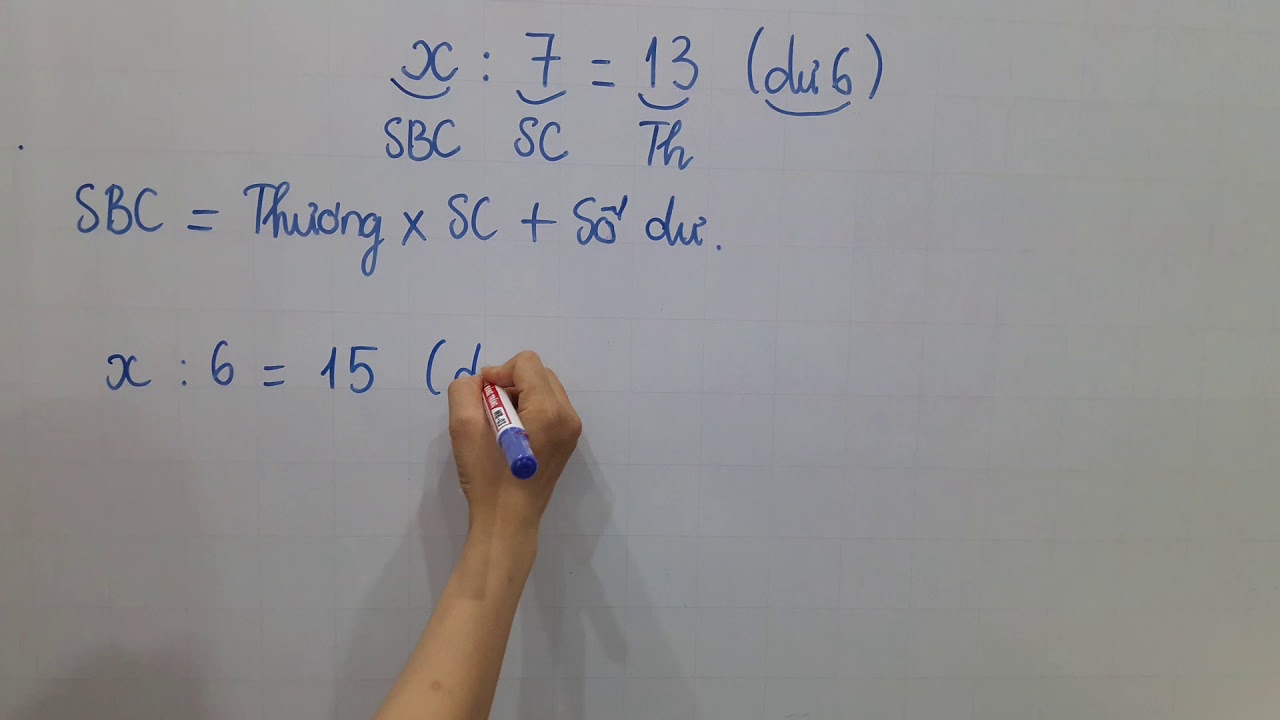 x : 7 = 13 (dư 6)
SBC SC Th
SBC = Thương x SC + Số dư.
x : 6 = 15 (d